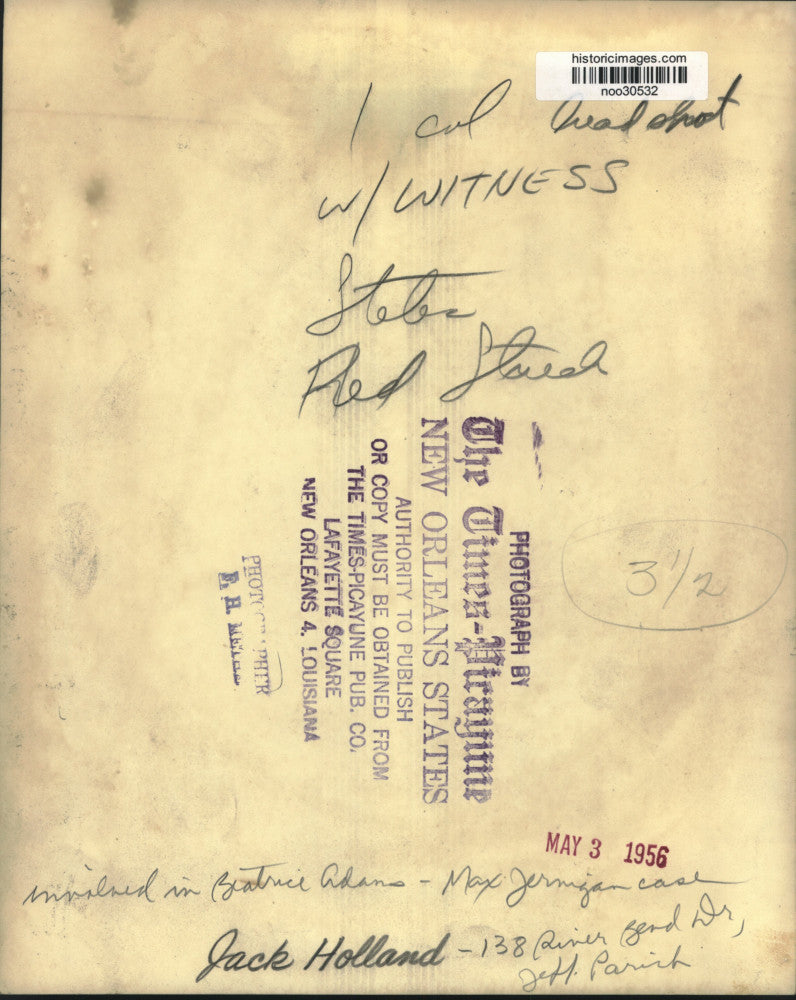 historicimages.com
noo30532
1 col headshot
w/ WITNESS
States
Red Streak
PHOTOGRAPH BY
The Times-Picayune
NEW ORLEANS STATES
AUTHORITY TO PUBLISH
OR COPY MUST BE OBTAINED FROM
THE TIMES-PICAYUNE PUB. CO.
LAFAYETTE SQUARE
NEW ORLEANS 4, LOUISIANA
PHOTOGRAPHER
3 1/2
MAY 3 1956
involved in Beatrice Adams - Max Jernigan case
Jack Holland - 138 River Bend Dr,
Jeff. Parish